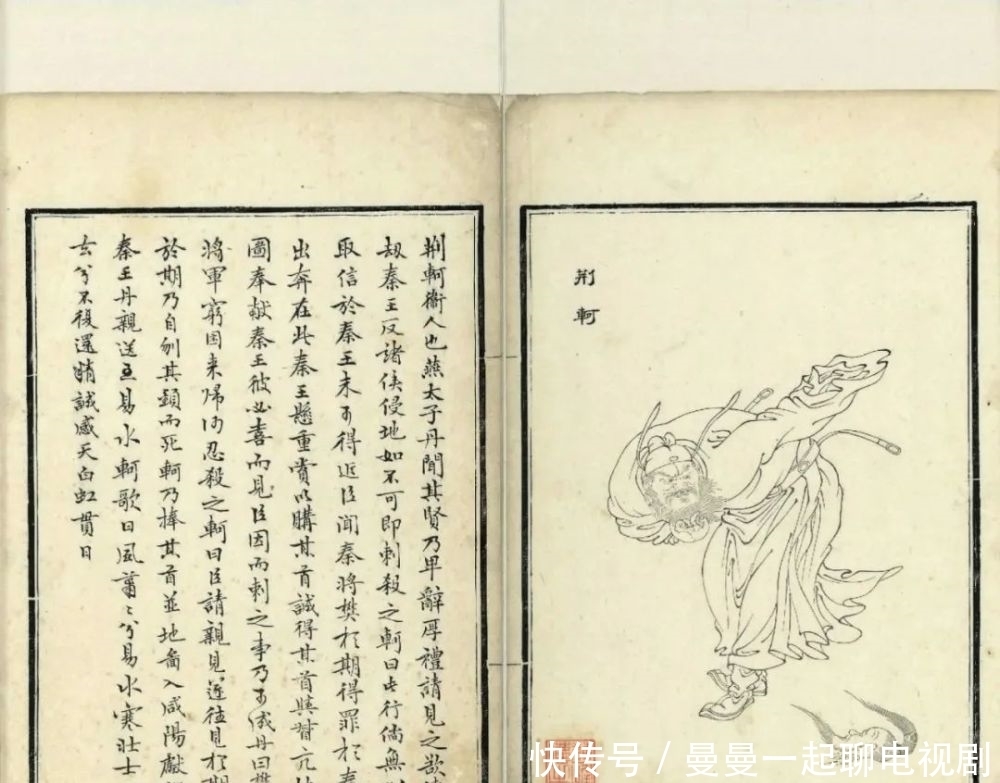 荆軻
荆軻衞人也燕太子丹聞其賢乃卑辭厚禮請見之欲
劫秦王反諸侯侵地如不可即刺殺之軻曰此行倘無
取信於秦王未可得近臣聞秦將樊於期得罪於秦
出奔在此秦王懸重賞以購其首誠得其首與督亢
圖奉献秦王彼必喜而見臣因而刺之事乃可成丹曰樊
將軍窮困来帰何忍殺之軻曰臣請親見遂往見於期
於期乃自刎其頸而死軻乃捧其首並地啚入咸陽献
秦王丹親送至易水軻歌曰風蕭〻兮易水寒壮士
去兮不復還精誠感天白虹貫日
快传号 / 曼曼一起聊电视剧